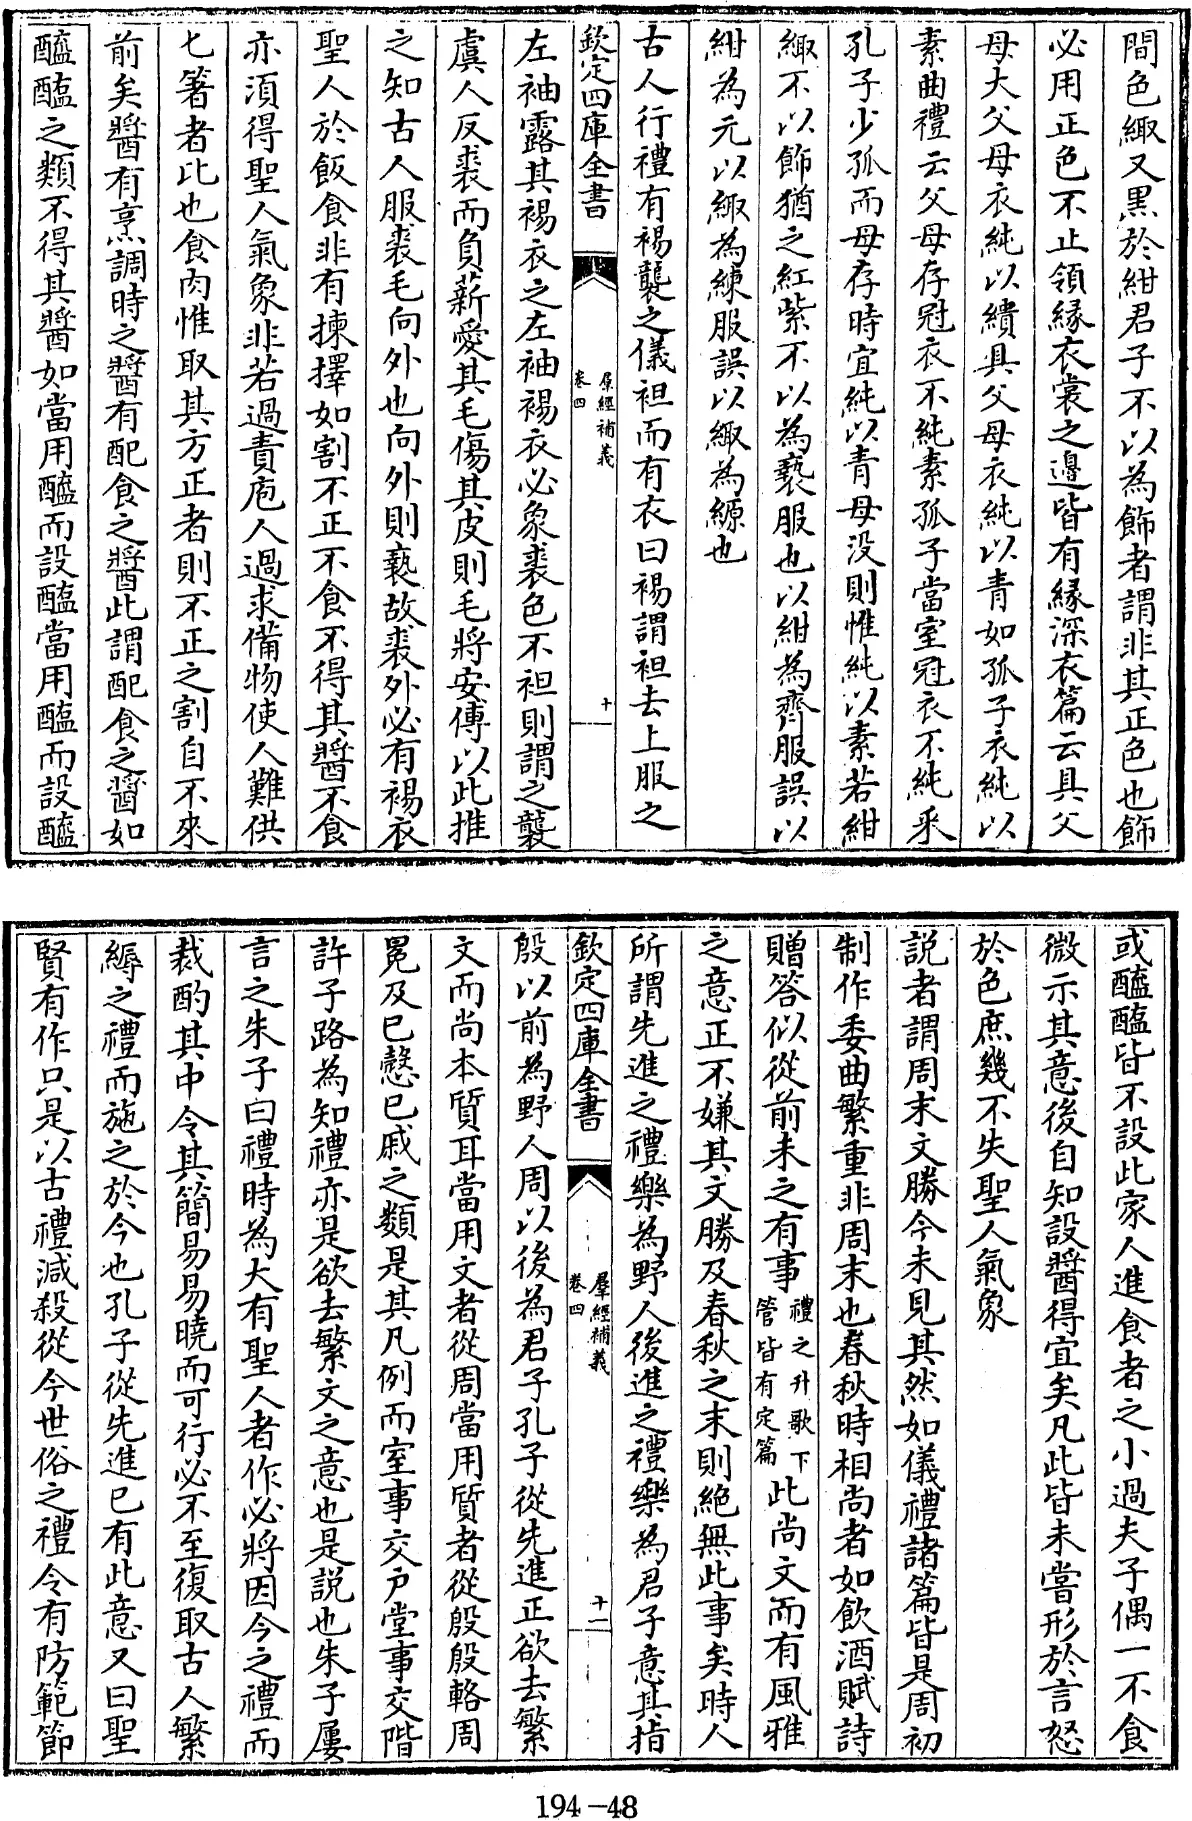 間色緅又黒於紺君子不以為飾者謂非其正色也飾
必用正色不止領縁衣裳之邉皆有縁深衣篇云具父
母大父母衣純以繢具父母衣純以青如孤子衣純以
素曲禮云父母存冠衣不純素孤子當室冠衣不純采
孔子少孤而母存時宜純以青母没則惟純以素若紺
緅不以飾猶之紅紫不以為褻服也以紺為齊服誤以
紺為元以緅為練服誤以緅為縓也
古人行禮有裼襲之儀袒而有衣曰裼謂袒去上服之
欽定四庫全書
羣經補義
卷四
十
左袖露其裼衣之左袖裼衣必象裘色不袒則謂之襲
虞人反裘而負薪愛其毛傷其皮則毛將安傅以此推
之知古人服裘毛向外也向外則褻故裘外必有裼衣
聖人於飯食非有揀擇如割不正不食不得其醬不食
亦須得聖人氣象非若過責庖人過求備物使人難供
七箸者比也食肉惟取其方正者則不正之割自不來
前矣醬有烹調時之醬有配食之醬此謂配食之醬如
醯醢之類不得其醬如當用醯而設醢當用醢而設醯
或醯醢皆不設此家人進食者之小過夫子偶一不食
微示其意後自知設醬得宜矣凡此皆未嘗形於言怒
於色庶幾不失聖人氣象
説者謂周末文勝今未見其然如儀禮諸篇皆是周初
制作委曲繁重非周末也春秋時相尚者如飲酒賦詩
贈答似從前未之有事禮之升歌下管皆有定篇此尚文而有風雅
之意正不嫌其文勝及春秋之末則絶無此事矣時人
所謂先進之禮樂為野人後進之禮樂為君子意其指
欽定四庫全書
羣經補義
卷四
十一
殷以前為野人周以後為君子孔子從先進正欲去繁
文而尚本質耳當用文者從周當用質者從殷殷輅周
冕及已慤已戚之類是其凡例而室事交戶堂事交階
許子路為知禮亦是欲去繁文之意也是説也朱子屢
言之朱子曰禮時為大有聖人者作必將因今之禮而
裁酌其中令其簡易易曉而可行必不至復取古人繁
縟之禮而施之於今也孔子從先進已有此意又曰聖
賢有作只是以古禮減殺從今世俗之禮令有防範節
194-48